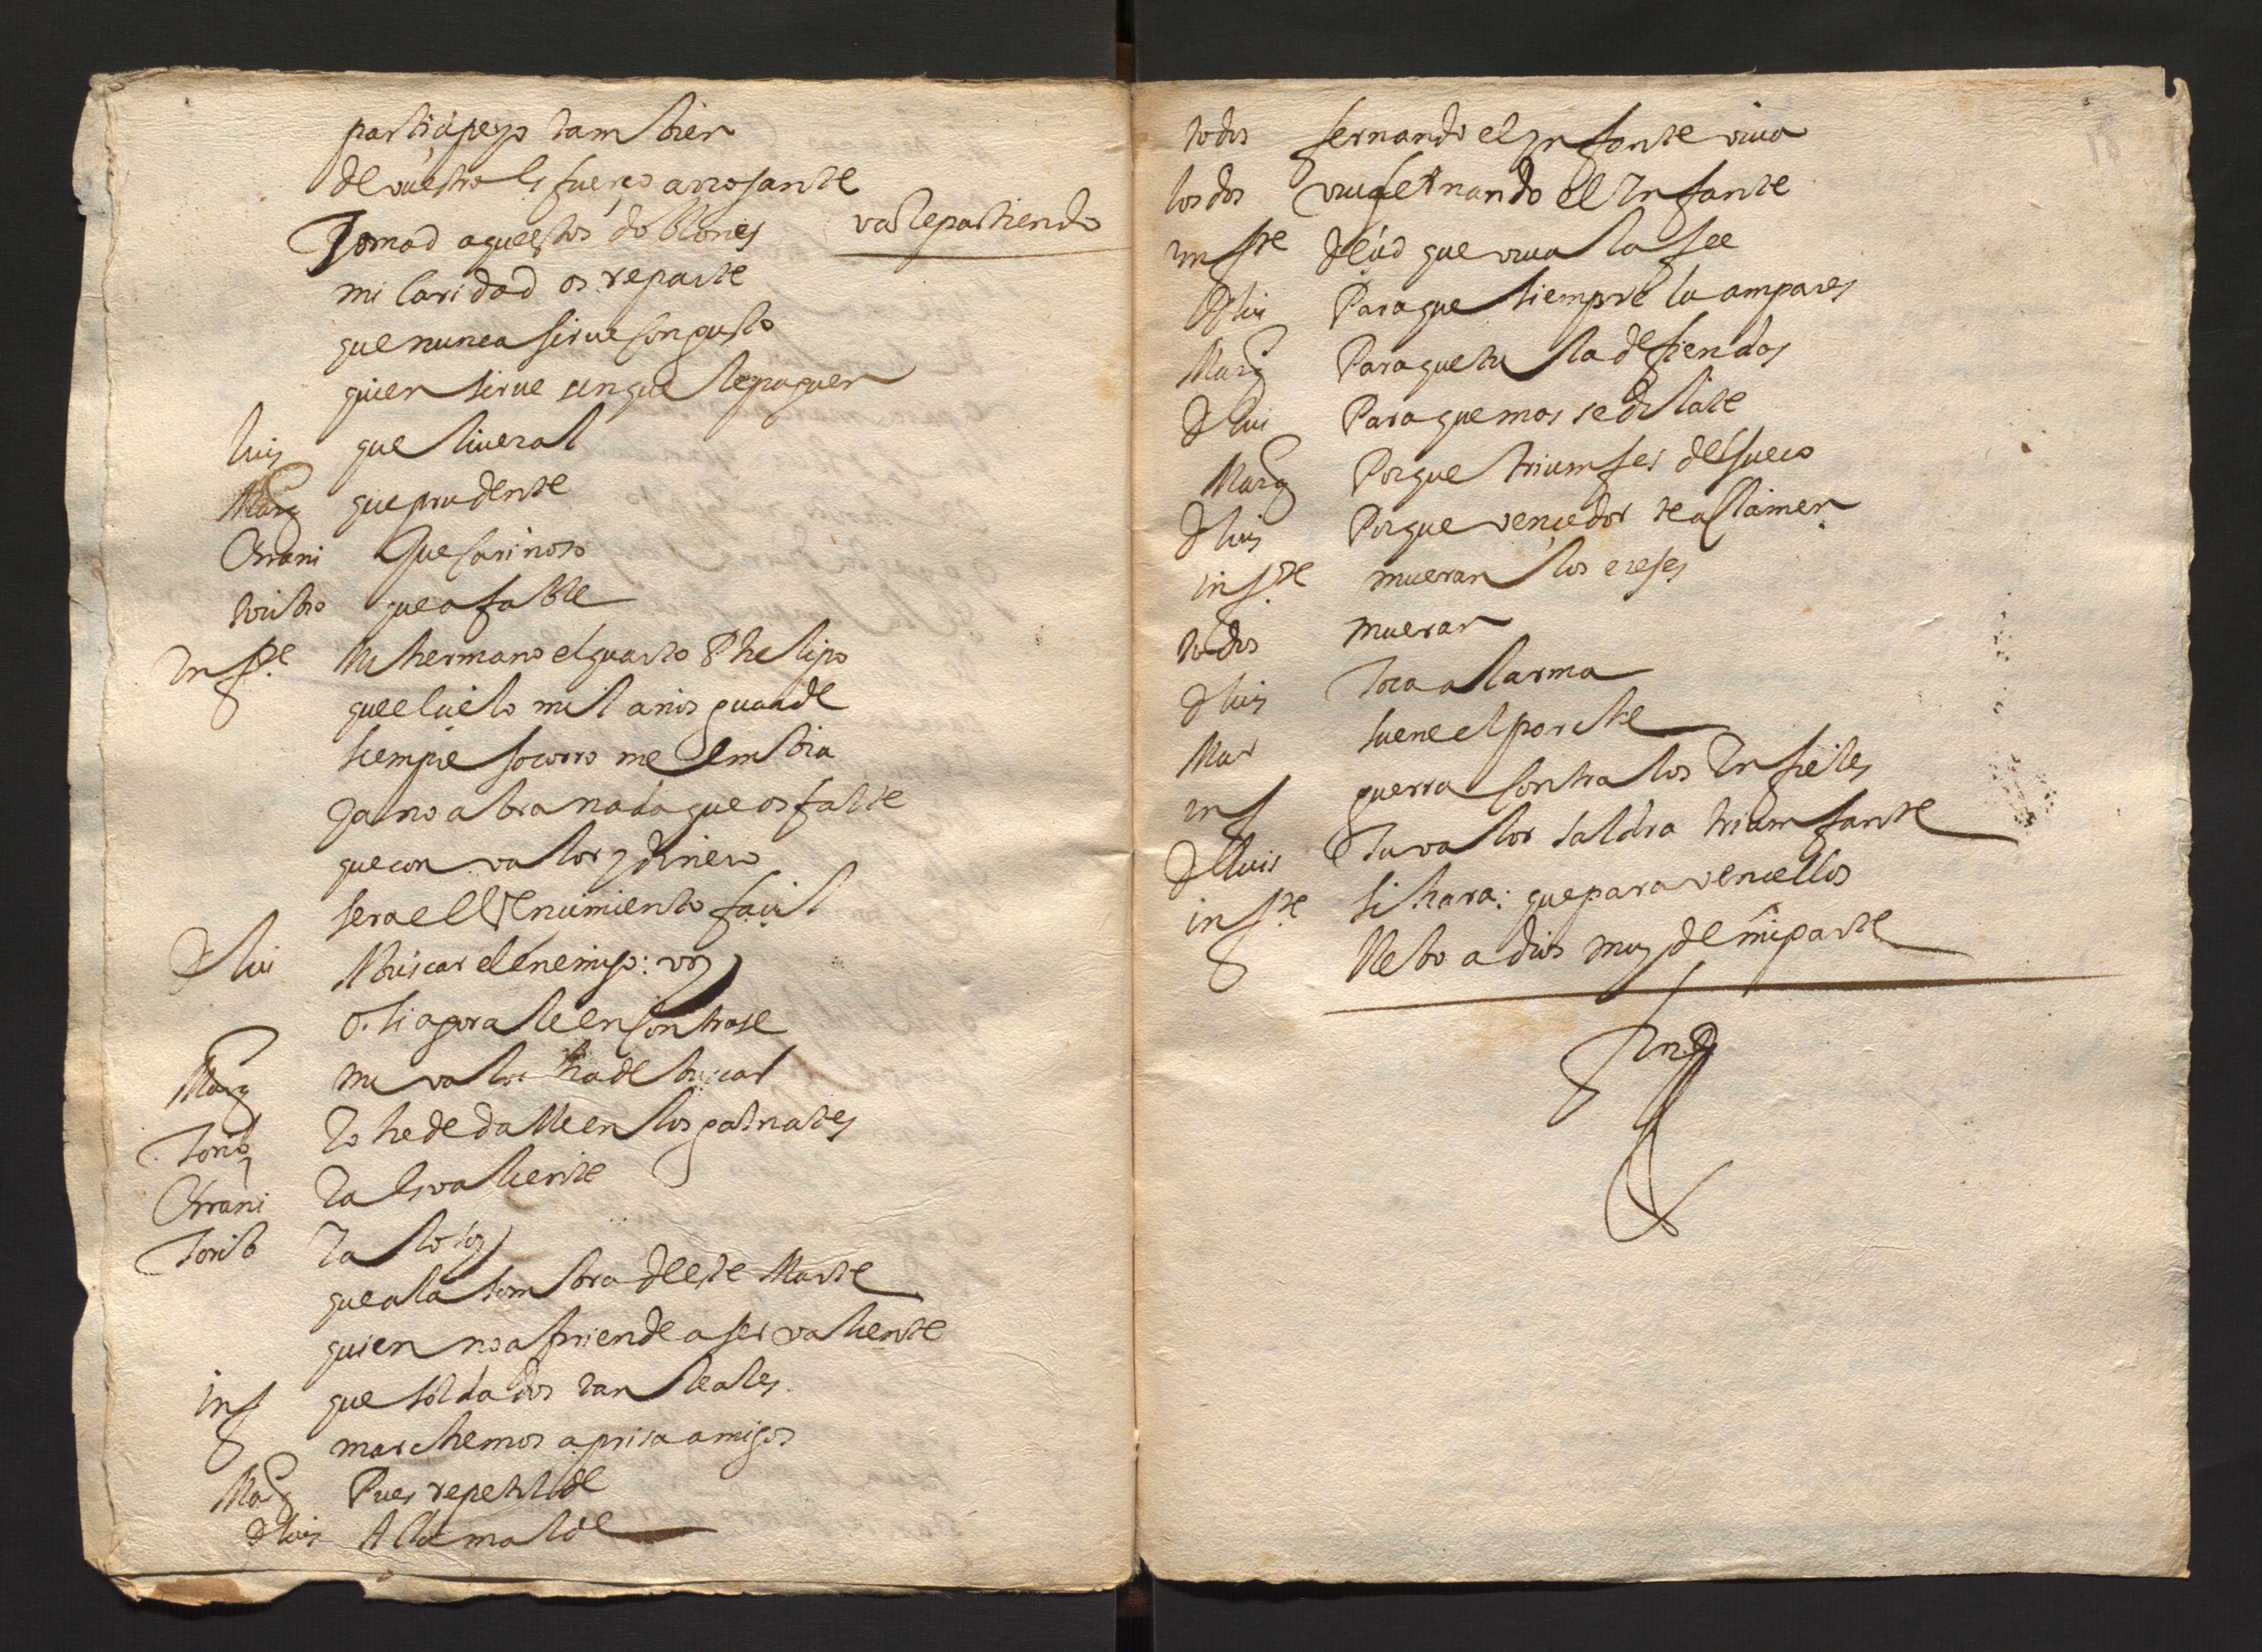 participeys tambien
de vuestro esfuerço arrogante
Tomad aquestos doblones vales repartiendo
mi caridad os reparte
que nunca sirue con gusto
quien sirue sin que le paguen
luis que liueral
Marq que prudente
Chrani Que cariñoso
toribio que afable
Inf.te Mi hermano el quarto Phelipo
que el cielo mil años guarde
siempre socorro me embia
ya no abra nada que os falte
que con valor y dinero
sera el Vencimiento facil
D lui A buscar el enemigo: voy
o. si agora le encontrase
Marq mi valor ha de buscar
Torib Yo he de dalle en los gatnates
Chrani Ya es valiente
Torib Ya lo soy
que a la sombra de este Marte
quien no apriende a ser valiente
inf que soldados tan leales
marchemos aprisa amigos
Marq Pues repetilde
D luis Aclamalde
todos fernando el Infante viua
los dos viua fernando el Infante
inf.te decid que viua la fee
D lui Para que siempre la ampares
Marq Para que tu la defiendas
D lui Para que mas se dilate
Marq Porque triumfes del sueco
D luis Porque vençedor te aclamen
inf.te mueran los erejes
todos mueran
D luis Toca al arma
Mar suene el parche
inf guerra contra los Infieles
D luis Tu valor saldra triumfante
inf.te si hara: que para vencellos
llebo a dios muy de mi parte
Fin